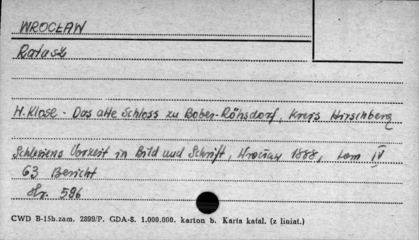 WROCŁAW
Ratusz
H. Klose - Das alte Schloss zu Bober-Röhsdorf, Kreis Hirschberg
Schlesiens Vorzeit in Bild und Schrift, 1888, tom IV
63 Bericht
Str. 596
CWD B-15b.zam. 2899/P. GDA-8. 1.000.000. karton b. Karta katal. (z liniat.)